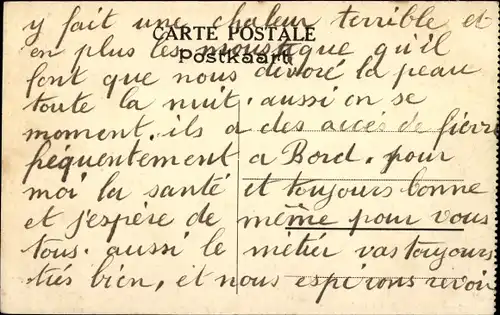 y fait une chaleur terrible et
CARTE POSTALE
en plus les moustique qu'il
Postkaart
font que nous dévoré la peau
toute la nuit. aussi on se
moment. ils a des accés de fievre
fréquentement a Bord. pour
moi la santé et toujours bonne
et j'espère de même pour vous
tous. aussi le métier vas toujours
trés bien, et nous espérons revoir